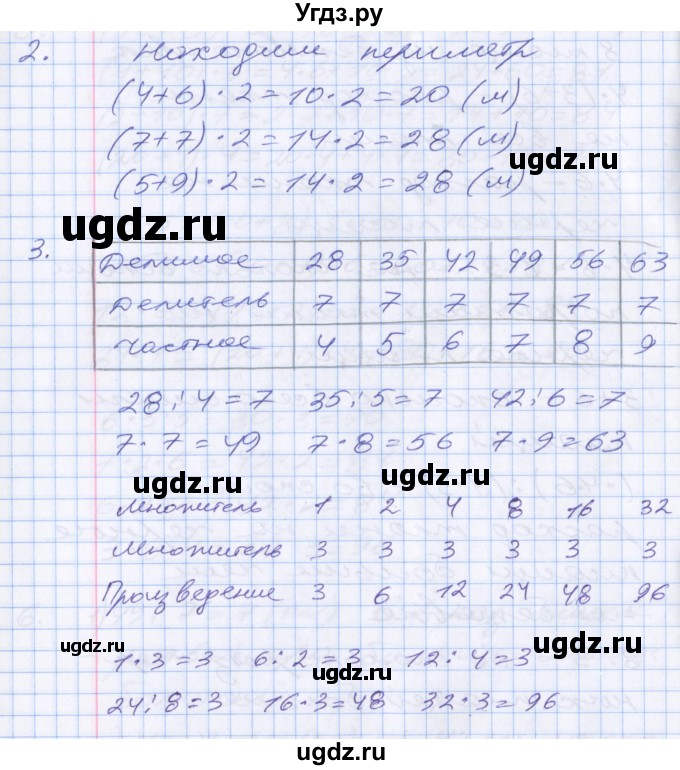 Угдз.ру
2. Находим периметр
(4+6)·2=10·2=20 (м)
(7+7)·2=14·2=28 (м)
ugdz.ru
(5+9)·2=14·2=28 (м)
ugdz.ru
3. Делимое 28 35 42 49 56 63
Делитель 7 7 7 7 7 7
Частное 4 5 6 7 8 9
28:4=7 35:5=7 42:6=7
7·7=49 7·8=56 7·9=63
ugdz.ru ugdz.ru
Множитель 1 2 4 8 16 32
Множитель 3 3 3 3 3 3
Произведение 3 6 12 24 48 96
ugdz.ru ugdz.ru
1·3=3 6:2=3 12:4=3
24:8=3 16·3=48 32·3=96
ugdz.ru
ugdz.ru